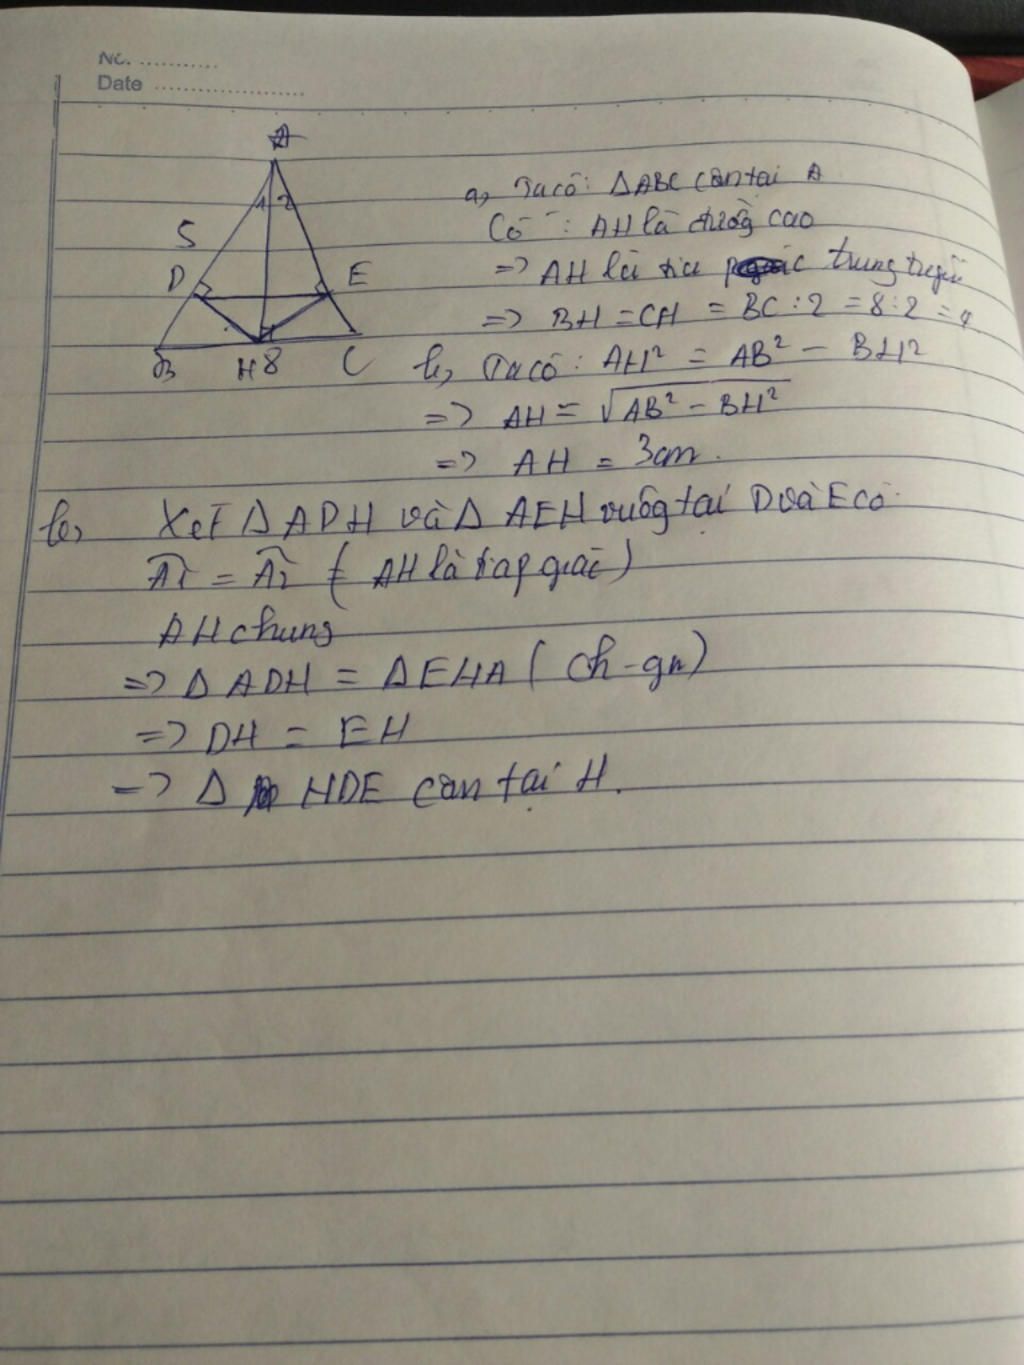 No. ...........
Date ......................
A
1 2
5
D E
B H 8 C
a, Ta có: ΔABC cân tại A
Có : AH là đường cao
=> AH là trung tuyến
=> BH = CH = BC : 2 = 8 : 2 = 4
b, Ta có: AH² = AB² - BH²
=> AH = √AB² - BH²
=> AH = 3cm.
b, Xét Δ ADH và Δ AEH vuông tại D và E có
A1 = A2 ( AH là giác )
AH chung
=> Δ ADH = Δ EHA ( ch - gn )
=> DH = EH
=> Δ HDE cân tại H.